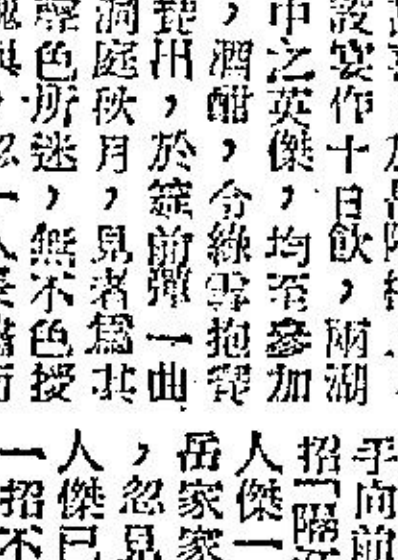 設宴作十日飲，兩湖
中之英傑，均至參加
，酒酣，令綠雲抱琵
琶出，於筵前彈一曲
洞庭秋月，見者爲其
聲色所迷，無不色授
手向前
招「隔
人傑一
岳家家
，忽見
人傑已
一招不